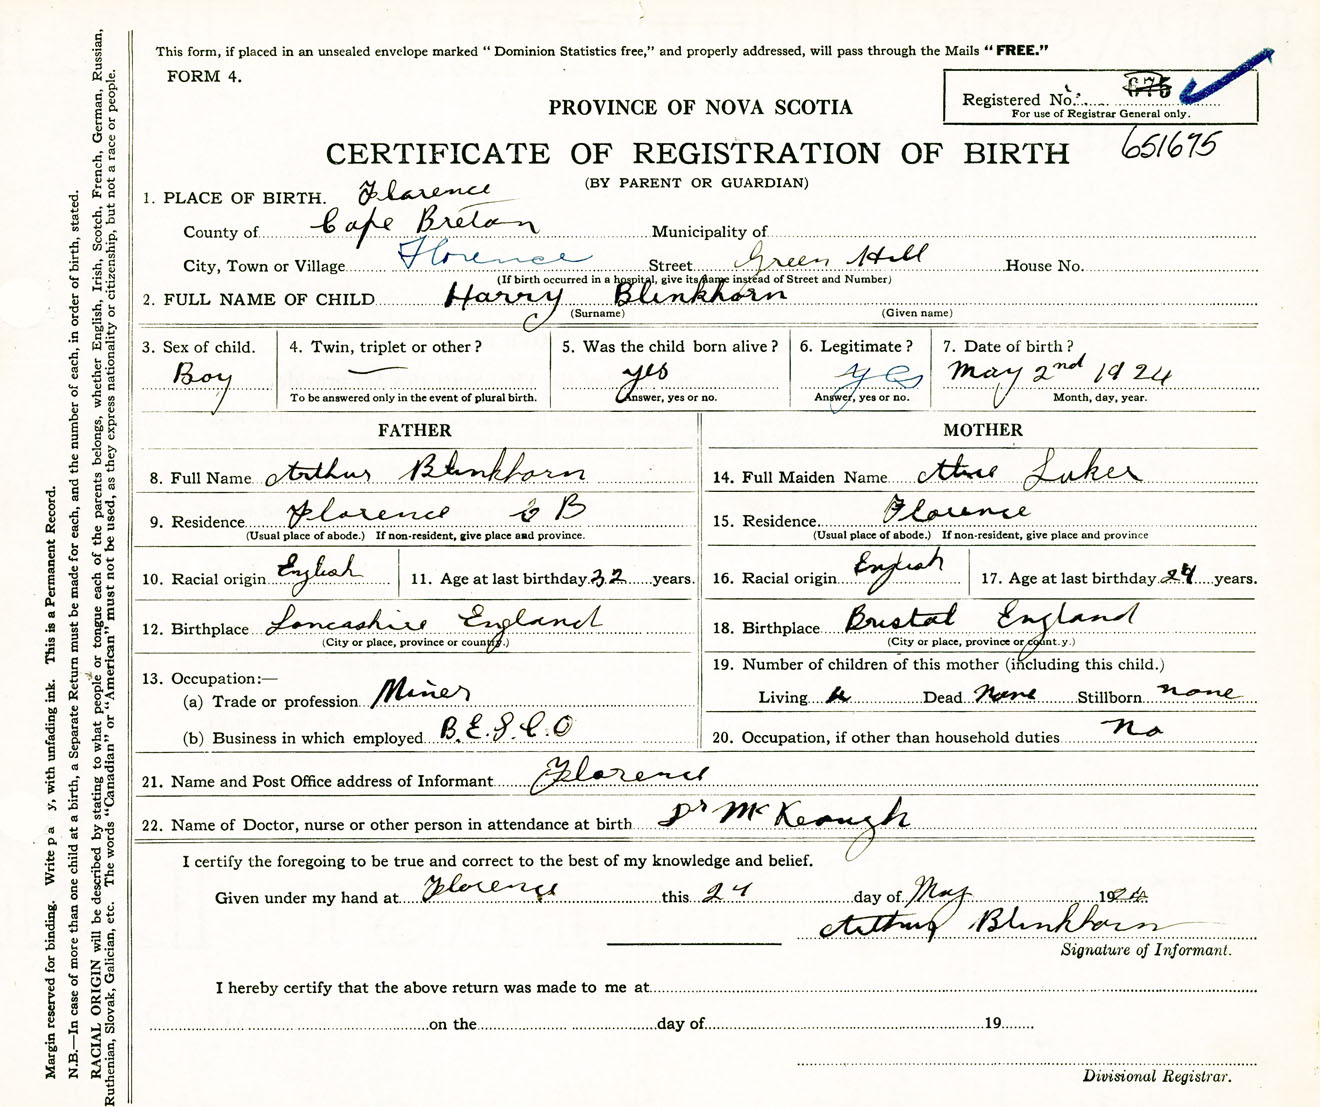 This form, if placed in an unsealed envelope marked “ Dominion Statistics free,” and properly addressed, will pass through the Mails “ FREE.”
FORM 4.
Registered No. 675
For use of Registrar General only.
PROVINCE OF NOVA SCOTIA
651675
CERTIFICATE OF REGISTRATION OF BIRTH
(BY PARENT OR GUARDIAN)
1. PLACE OF BIRTH. Florence
County of Cape Breton Municipality of
City, Town or Village Florence Street Green Hill House No.
(If birth occurred in a hospital, give its name instead of Street and Number)
2. FULL NAME OF CHILD Harry Blinkhorn
(Surname) (Given name)
3. Sex of child. 4. Twin, triplet or other ? 5. Was the child born alive ? 6. Legitimate ? 7. Date of birth ?
Boy — yes yes May 2nd 1924
To be answered only in the event of plural birth. Answer, yes or no. Answer, yes or no. Month, day, year.
FATHER
8. Full Name Arthur Blinkhorn
9. Residence Florence C B
(Usual place of abode.) If non-resident, give place and province.
10. Racial origin English 11. Age at last birthday 32 years.
12. Birthplace Lancashire England
(City or place, province or country.)
13. Occupation:—
(a) Trade or profession Miner
(b) Business in which employed B.E.S.C.O
MOTHER
14. Full Maiden Name Alice Luker
15. Residence Florence
(Usual place of abode.) If non-resident, give place and province
16. Racial origin English 17. Age at last birthday 24 years.
18. Birthplace Bristol England
(City or place, province or count.y.)
19. Number of children of this mother (including this child.)
Living Dead none Stillborn none
20. Occupation, if other than household duties No
21. Name and Post Office address of Informant Florence
22. Name of Doctor, nurse or other person in attendance at birth Dr McKeough
I certify the foregoing to be true and correct to the best of my knowledge and belief.
Given under my hand at Florence this 24 day of May 1924
Arthur Blinkhorn
Signature of Informant.
I hereby certify that the above return was made to me at
on the day of 19
Divisional Registrar.
Margin reserved for binding. Write p a y, with unfading ink. This is a Permanent Record.
N.B.—In case of more than one child at a birth, a Separate Return must be made for each, and the number of each, in order of birth, stated.
RACIAL ORIGIN will be described by stating to what people or tongue each of the parents belongs, whether English, Irish, Scotch, French, German, Russian,
Ruthenian, Slovak, Galician, etc. The words “Canadian” or “American” must not be used, as they express nationality or citizenship, but not a race or people.